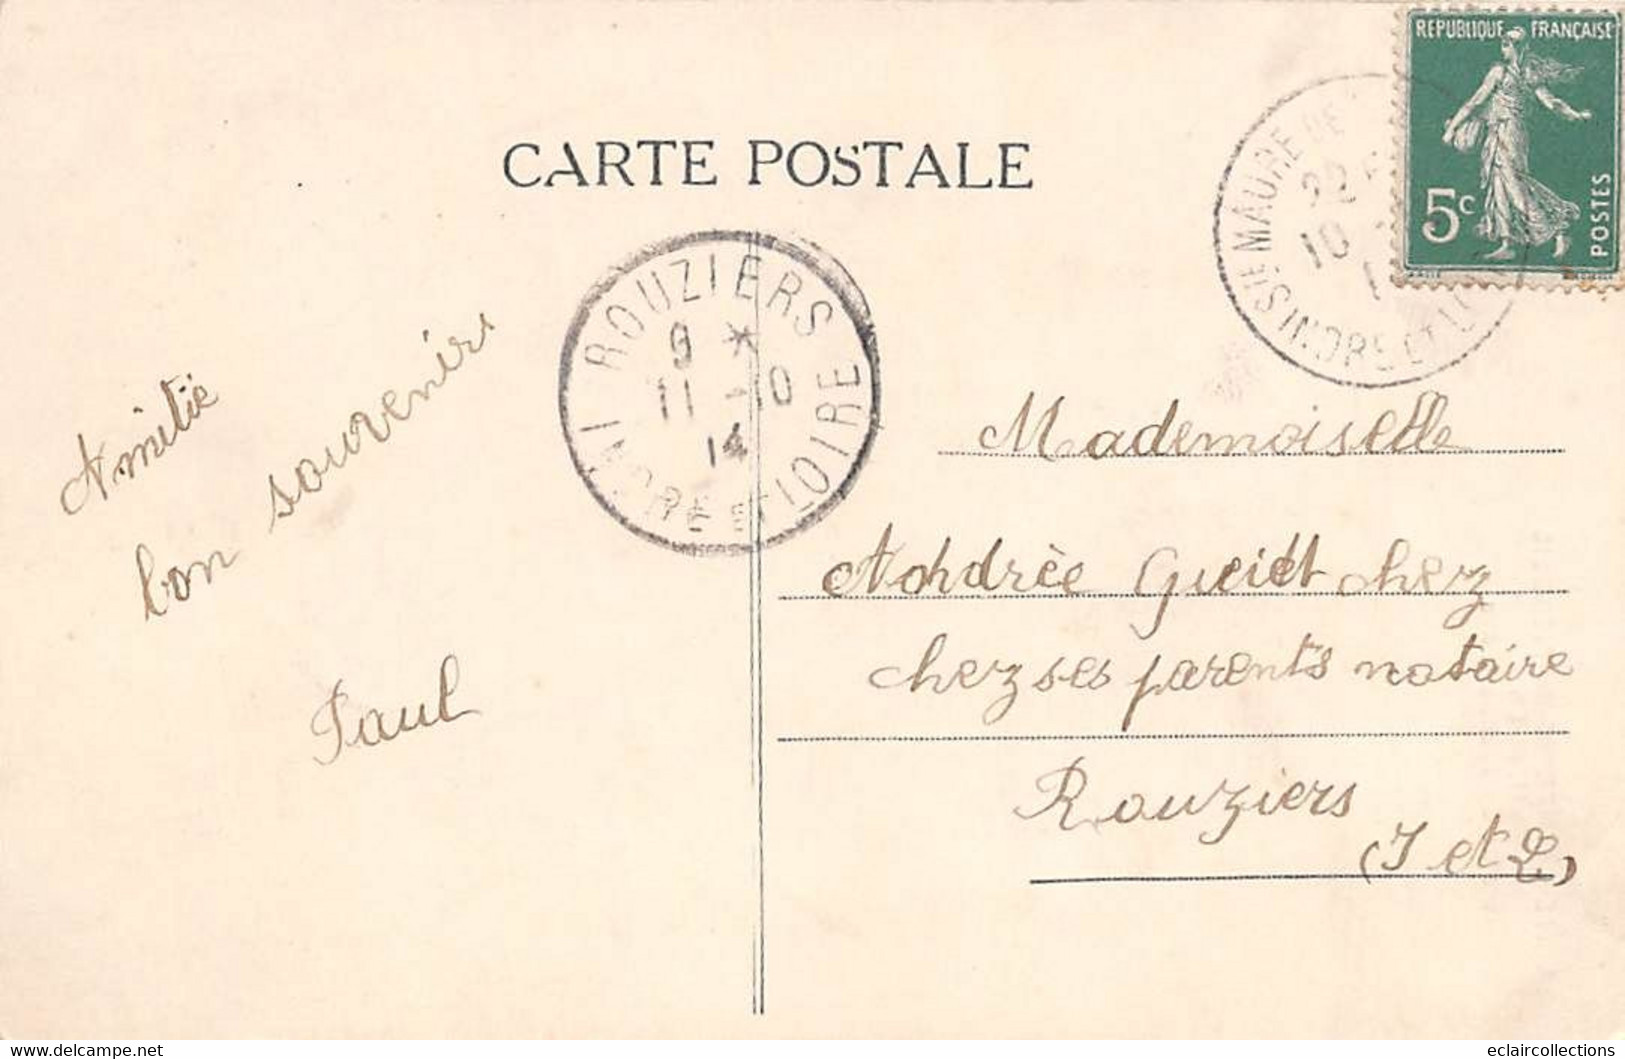 CARTE POSTALE
REPUBLIQUE FRANÇAISE
5c
POSTES
STE MAURE DE
10
INDRE ET L
ROUZIERS
9 *
11 -10
14
INDRE ET LOIRE
Amitié
bon souvenir
Paul
Mademoiselle
Andrée chez
chez ses parents notaire
Rouziers
(I et L)
www.delcampe.net
eclaircollections